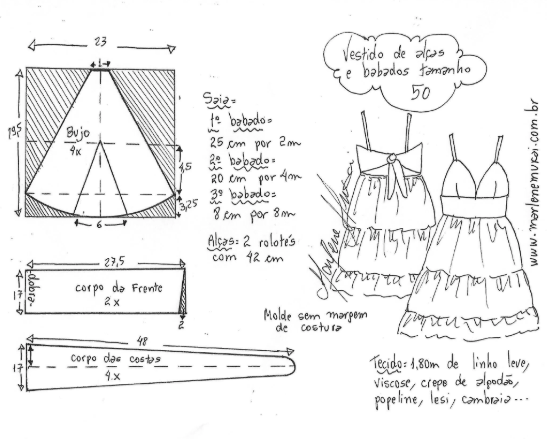 Vestido de alças
e babados tamanho
50
23
1
19,5
Bujo
4x
4,5
3,25
6
Saia=
1º babado=
25 cm por 2m
2º babado=
20 cm por 4m
3º babado=
8 cm por 8m
Alças: 2 rolotês
com 42 cm
27,5
17
-dobra-
corpo da frente
2x
2
48
17
corpo das costas
4x
Molde sem margem
de costura
Marlene Mukai
www.marlenemukai.com.br
Tecido: 1,80m de linho leve,
viscose, crepe de algodão,
popeline, lesi, cambraia...